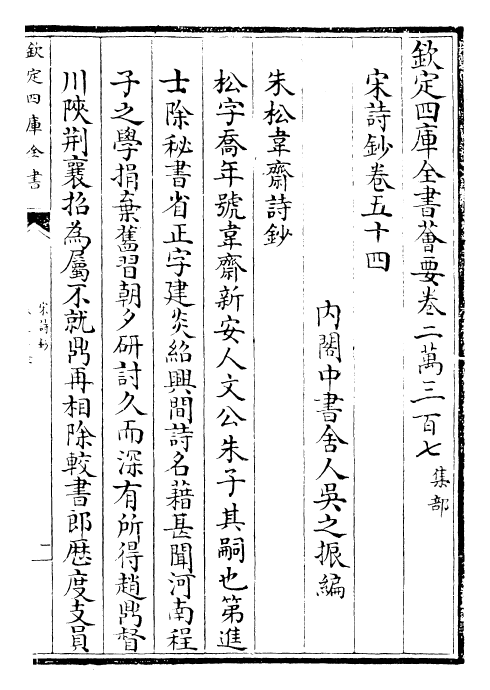 欽定四庫全書薈要卷二萬三百七 集部
宋詩鈔卷五十四
內閣中書舍人吳之振編
朱松韋齋詩鈔
松字喬年號韋齋新安人文公朱子其嗣也第進
士除秘書省正字建炎紹興間詩名藉甚聞河南程
子之學捐棄舊習朝夕研討久而深有所得趙鼎督
川陜荆襄招為屬不就鼎再相除較書郎歷度支員
欽定四庫全書
宋詩鈔
一